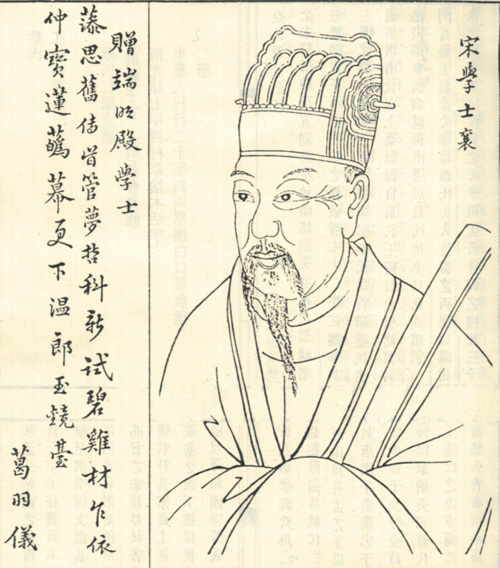 宋學士襄
贈端明殿學士
藻思舊傳管夢哲科新試碧雞材乍依
仲寶蓮蘤幕更下温郎玉鏡臺
葛羽儀